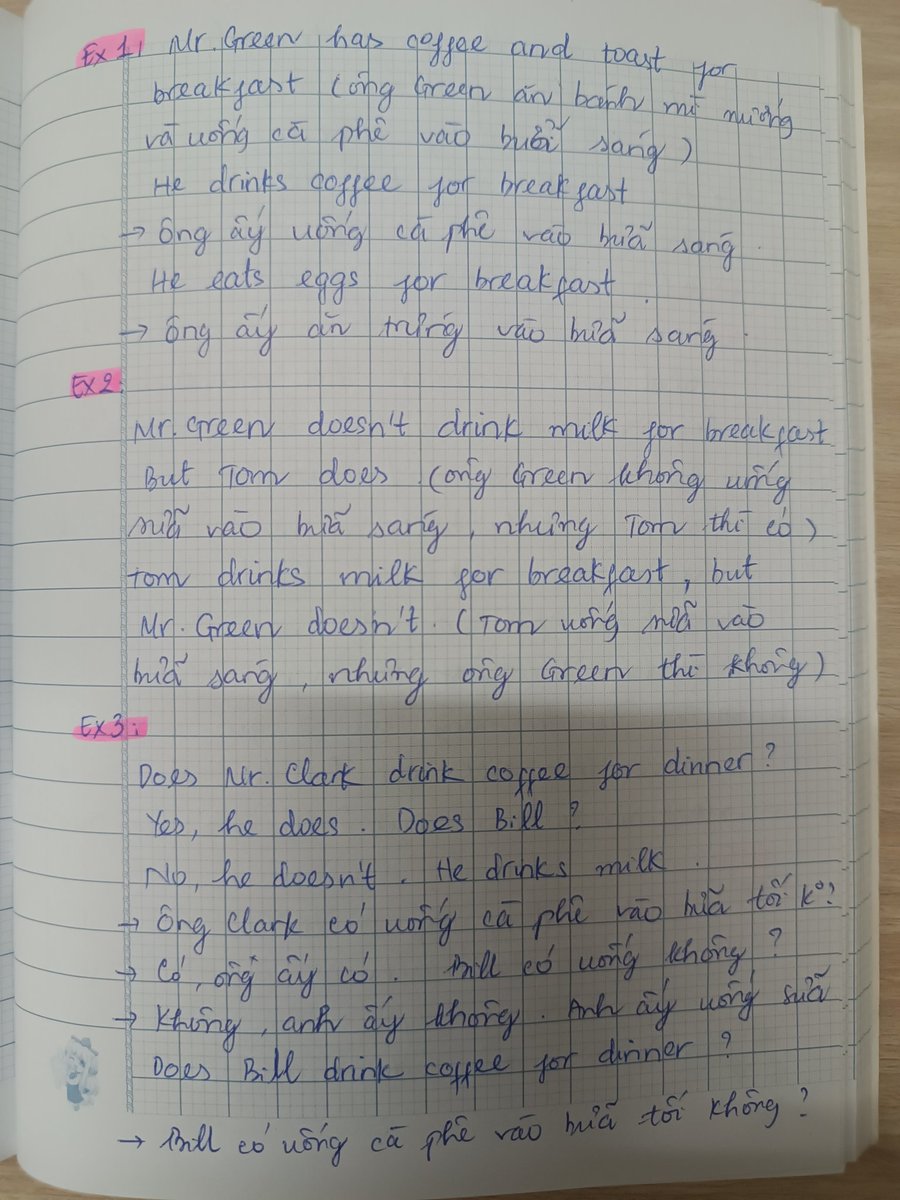 Ex 1: Mr. Green has coffee and toast for
breakfast (ông Green ăn bánh mì nướng
và uống cà phê vào buổi sáng)
He drinks coffee for breakfast
→ Ông ấy uống cà phê vào bữa sáng.
He eats eggs for breakfast.
→ Ông ấy ăn trứng vào bữa sáng.
Ex 2:
Mr. Green doesn't drink milk for breakfast
But Tom does (ông Green không uống
sữa vào bữa sáng, nhưng Tom thì có)
Tom drinks milk for breakfast, but
Mr. Green doesn't. (Tom uống sữa vào
bữa sáng, nhưng ông Green thì không)
Ex 3:
Does Mr. Clark drink coffee for dinner?
Yes, he does. Does Bill?
No, he doesn't. He drinks milk.
→ Ông Clark có uống cà phê vào bữa tối k°?
→ Có, ông ấy có. Bill có uống không?
→ Không, anh ấy không. Anh ấy uống sữa
Does Bill drink coffee for dinner?
→ Bill có uống cà phê vào bữa tối không?